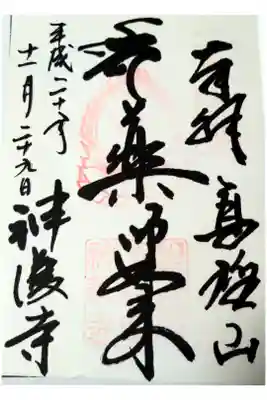 奉拝
山
薬師如来
平成二十年
十一月二十九日
神護寺